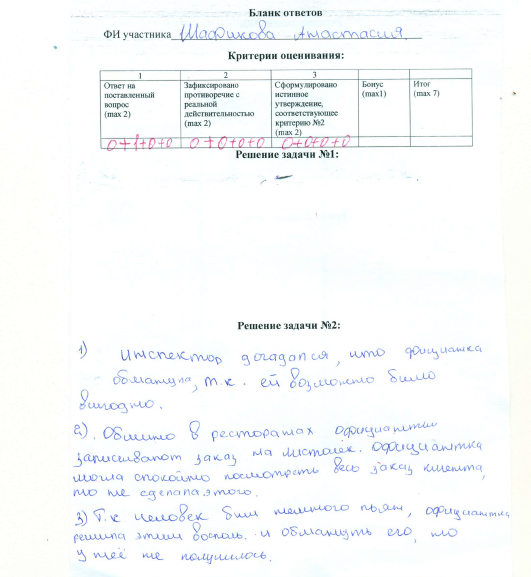 Бланк ответов
ФИ участника Шафикова Анастасия.
Критерии оценивания:
1 2 3
Ответ на поставленный вопрос (max 2)
Зафиксировано противоречие с реальной действительностью (max 2)
Сформулировано истинное утверждение, соответствующее критерию №2 (max 2)
Бонус (max1)
Итог (max 7)
0+1+0+0 0+0+0+0 0+0+0+0
Решение задачи №1:
Решение задачи №2:
1) Инспектор догадался, что официантка
обманула, т.к. ей возможно было
выгодно.
2). Обычно в ресторанах официантки
записывают заказ на листочек. официантка
могла спокойно посмотреть весь заказ клиента,
но не сделала этого.
3) Т.к человек был немного пьян, официантка
решила этим восполь. и обмануть его, но
у неё не получилось.